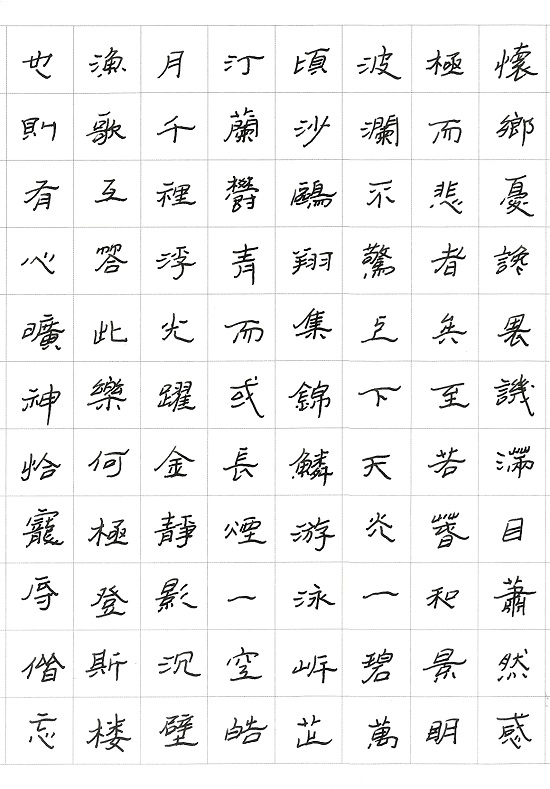 懷鄉憂讒畏譏滿目蕭然感
極而悲者矣至若春和景明
波瀾不驚上下天光一碧萬
頃沙鷗翔集錦鱗游泳岸芷
汀蘭鬱青而或長煙一空皓
月千裡浮光躍金靜影沉璧
漁歌互答此樂何極登斯楼
也則有心曠神怡寵辱偕忘